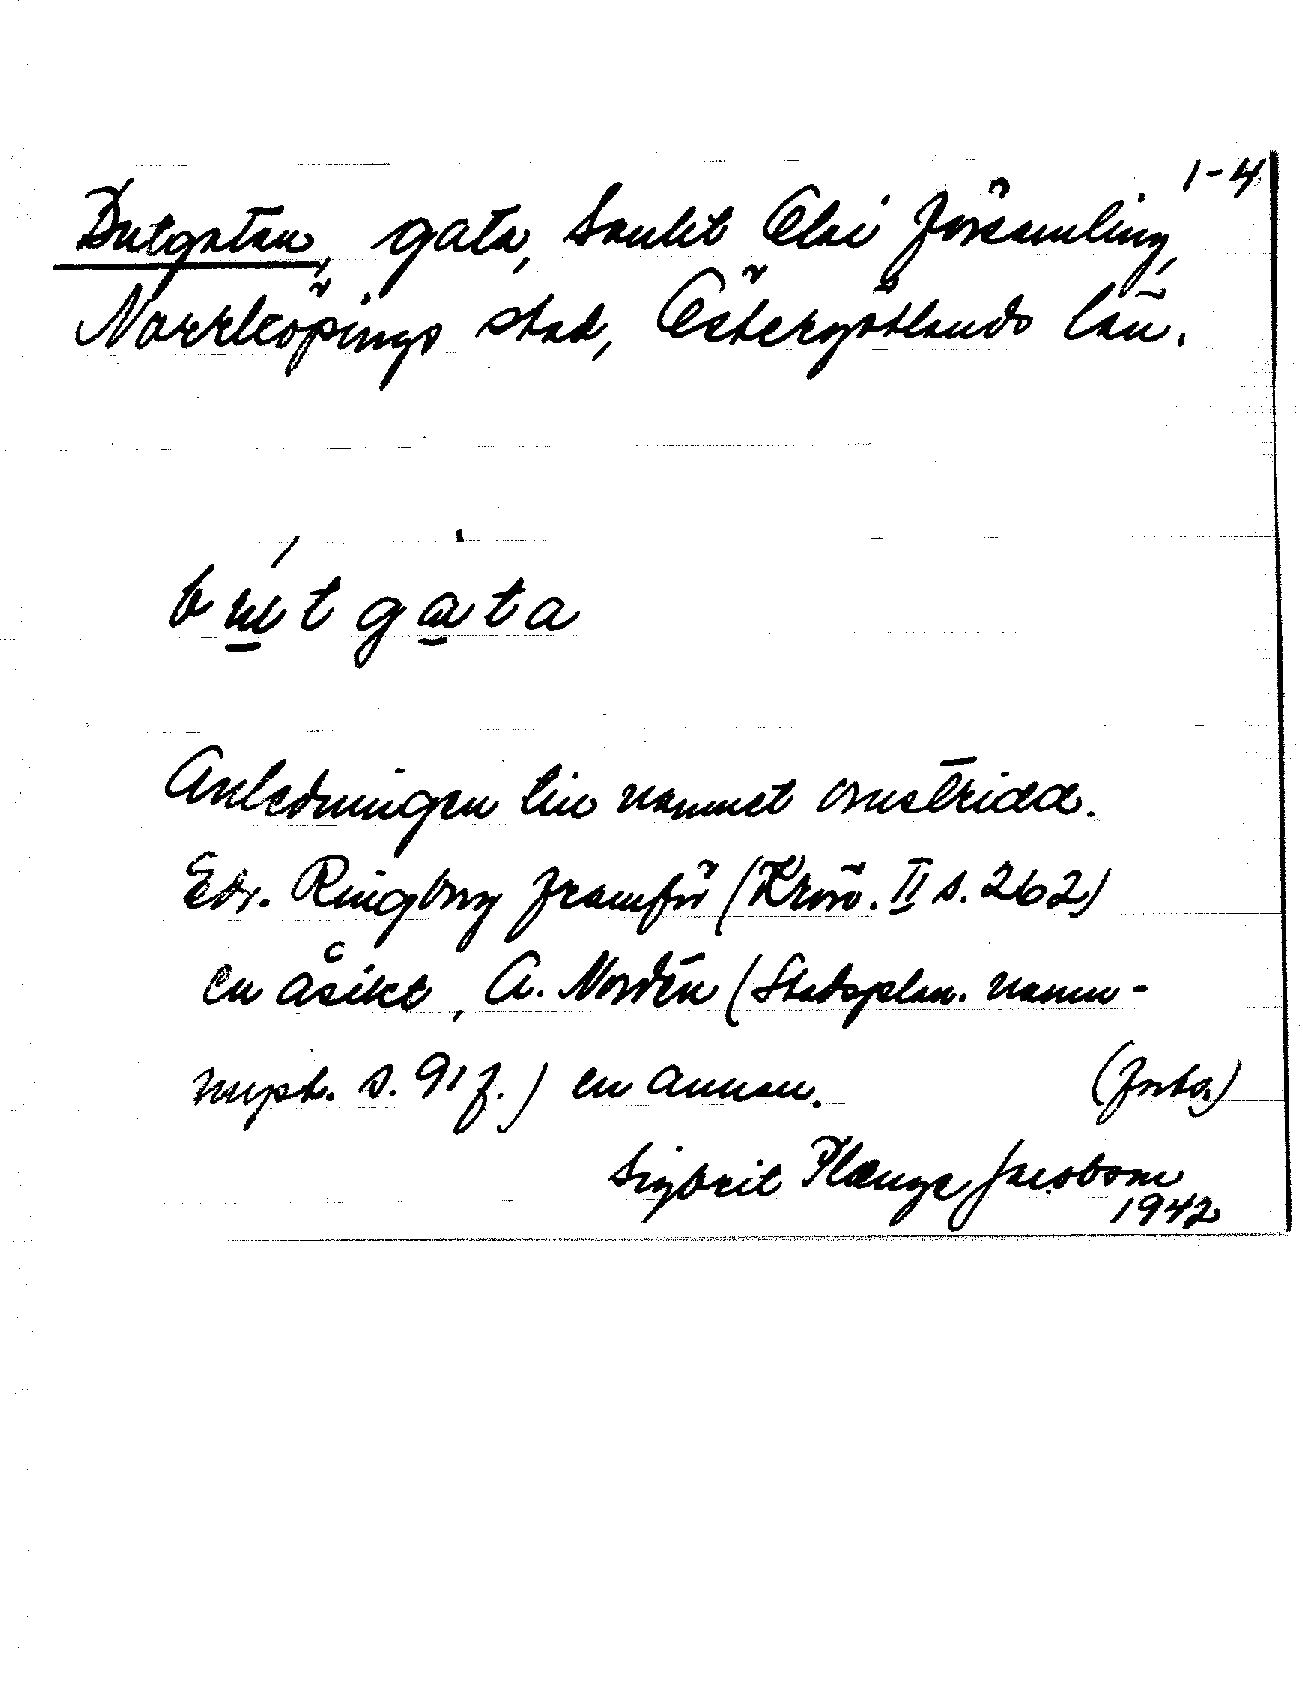 1-4
Butgatan, gata, Sankt Olai församling,
Norrköpings stad, Östergötlands län.
bútgàta
Anledningen till namnet omstridd.
Edv. Ringborg framför (Krön. II s. 262)
en åsikt, A. Nordén (Stadsplan. namn-
s. 91 f.) en annan. (forts.)
Sigbrit Plænge Jacobson
1942